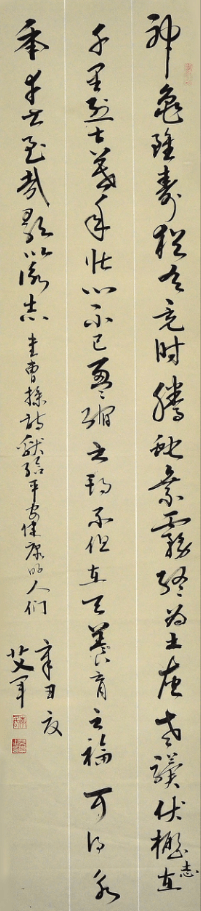 神龟虽寿犹有竟时腾蛇乘雾终为土灰老骥伏枥志在
千里烈士暮年壮心不已盈缩之期不但在天养育之福可得永
年幸甚至哉歌以咏志 曹操诗献给平安健康的人们
辛丑夏
艾军